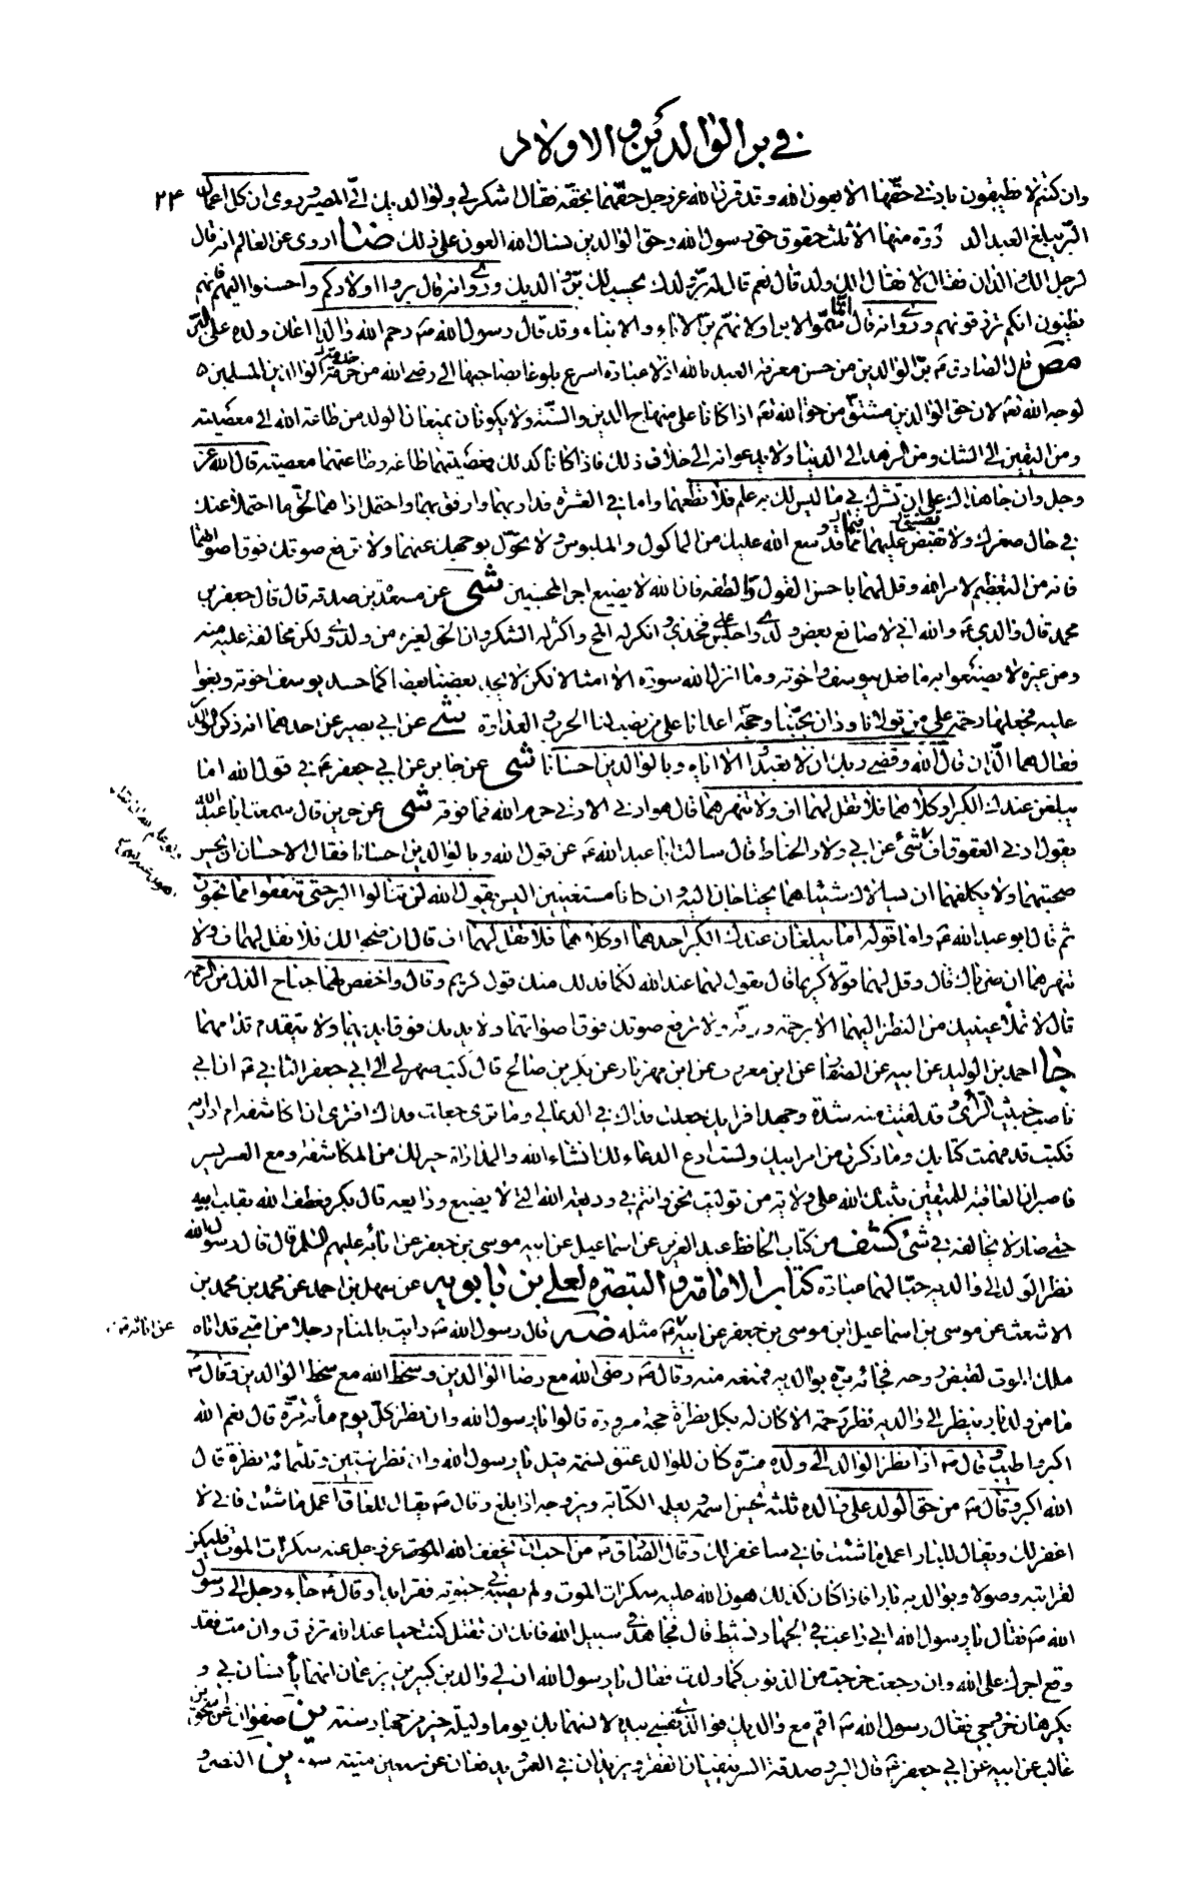 في بر الوالدين والاولاد
٢٣
وان كنتم لا تطيقون باذني حقهما الا بعون الله وقد قرن الله عز وجل حقهما بحقه فقال اشكر لي ولوالديك اليّ المصير وروى ان كل اعمال
البر يبلغ العبد الذروة منها الا ثلث حقوق حق رسول الله وحق الوالدين نسال الله العون على ذلك ضا اروى عن العالم انه قال
لرجل الك والدان فقال لا فقال الك ولد قال نعم قال له بر ولدك يحسب لك بر والديك وروى انه قال بروا اولادكم واحسنوا اليهم فانهم
يظنون انكم ترزقونهم وروى انه قال انما سمّوا الابرار لانهم بروا الاباء والابناء وقد قال رسول الله ص رحم الله والدا اعان ولده على البر
مص قال الصادق ع بر الوالدين من حسن معرفة العبد بالله اذ لا عبادة اسرع بلوغا بصاحبها الى رضى الله من حرمة الوالدين المسلمين
لوجه الله تع لان حق الوالدين مشتق من حق الله تع اذا كانا على منهاج الدين والسنة ولا يكونان يمنعان الولد من طاعة الله الى معصيته
ومن اليقين الى الشك ومن الزهد الى الدنيا ولا يدعوانه الى خلاف ذلك فاذا كانا كذلك فمعصيتهما طاعة وطاعتهما معصية قال الله عز
وجل وان جاهداك على ان تشرك بي ما ليس لك به علم فلا تطعهما واما في العشرة فدارهما وارفق بهما واحتمل اذاهما نحو ما احتملا عنك
في حال صغرك ولا تقبض عليهما مما قد وسع الله عليك من الماكول والملبوس ولا تحول بوجهك عنهما ولا ترفع صوتك فوق اصواتهما
فانه من التعظيم لامر الله وقل لهما باحسن القول والطفه فان الله لا يضيع اجر المحسنين شى عن مسعدة بن صدقة قال قال جعفر بن
محمد قال والدي ع والله اني لاصانع بعض ولدي واجلسه على فخذي وانكر له المخ واكثر له الشكر وان الحق لغيره من ولدي ولكن مخالفة عليه منه
ومن غيره لا يصنعوا به ما فعل بيوسف واخوته وما انزل الله سورة الا امثالا لكن لا يجد بعضنا بعضا كما حسد يوسف اخوته وبغوا
عليه فجعلها رحمة على من تولانا ودان بحبنا وحجة اعدائنا على من نصب لنا الحرب والعداوة شى عن ابي بصير عن احدهما انه ذكر الوالدين
فقال هما اللذان قال الله وقضى ربك ان لا تعبدوا الا اياه وبالوالدين احسانا شى عن جابر عن ابي جعفر ع في قول الله اما
يبلغن عندك الكبر او كلاهما فلا تقل لهما اف ولا تنهرهما قال هو ادنى الاذى حرم الله فما فوقه شى عن حريز قال سمعت ابا عبد الله
يقول ادنى العقوق اف شى عن ابي ولاد الحناط قال سالت ابا عبد الله ع عن قول الله وبالوالدين احسانا فقال الاحسان ان تحسن
صحبتهما ولا تكلفهما ان يسالاك شيئا هما يحتاجان اليه وان كانا مستغنيين اليس يقول الله لن تنالوا البر حتى تنفقوا مما تحبون
ثم قال ابو عبد الله ع واما قوله اما يبلغان عندك الكبر احدهما او كلاهما فلا تقل لهما اف قال ان اضجراك فلا تقل لهما اف ولا
تنهرهما ان ضرباك قال وقل لهما قولا كريما قال تقول لهما غفر الله لكما فذلك منك قول كريم وقال واخفض لهما جناح الذل من الرحمة
قال لا تملأ عينيك من النظر اليهما الا برحمة ورقة ولا ترفع صوتك فوق اصواتهما ولا يديك فوق ايديهما ولا تتقدم قدامهما
جا احمد بن الوليد عن ابيه عن الصفار عن ابن معروف عن ابن مهزيار عن بكر بن صالح قال كتب صهر لي الى ابي جعفر الثاني ع ان ابي
ناصب خبيث الراى وقد لقيت منه شدة وجهدا فرايك جعلت فداك في الدعاء لي وما ترى جعلت فداك افترى ان اكاشفه ام اداريه
فكتب قد فهمت كتابك وما ذكرت من امر ابيك ولست ادع الدعاء لك انشاء الله والمداراة خير لك من المكاشفة ومع العسر يسر
فاصبر ان العاقبة للمتقين ثبتك الله على ولاية من توليت نحن وانتم في وديعة الله التي لا يضيع ودايعه قال بكر فعطف الله بقلب ابيه
حتى صار لا يخالفه في شئ كشف من كتاب الحافظ عبد العزيز عن اسماعيل عن ابيه موسى بن جعفر عن ابائه عليهم السلم قال قال رسول الله
نظر الولد الى والديه حبا لهما عبادة كتاب الامامة والتبصرة لعلي بن بابويه عن سهل بن احمد عن محمد بن محمد بن
الاشعث عن موسى بن اسماعيل ابن موسى بن جعفر عن ابيه ع مثله ضه قال رسول الله ص رايت بالمنام رجلا من امتي قد اتاه
ملك الموت لقبض روحه فجائه بره بوالديه فمنعه منه وقال ص رضى الله مع رضا الوالدين وسخط الله مع سخط الوالدين وقال ص
ما من ولد بار ينظر الى والديه نظر رحمة الا كان له بكل نظرة حجة مبرورة قالوا يا رسول الله وان نظر كل يوم مأة مرة قال نعم الله
اكبر واطيب وقال ص اذا نظر الوالد الى ولده فسره كان للوالد عتق نسمة قيل يا رسول الله وان نظر ستين وثلثمائة نظرة قال
الله اكبر وقال ص من حق الولد على والده ثلثة يحسن اسمه ويعلمه الكتابة ويزوجه اذا بلغ وقال ص يقال للعاق اعمل ما شئت فاني لا
اغفر لك ويقال للبار اعمل ما شئت فاني ساغفر لك وقال الصادق ع من احب ان يخفف الله عز وجل عنه سكرات الموت فليكن
لقرابته وصولا وبوالديه بارا فاذا كان كذلك هون الله عليه سكرات الموت ولم يصبه في حيوته فقر ابدا وقال ع جاء رجل الى رسول
الله ص فقال يا رسول الله اني راغب في الجهاد نشيط قال فجاهد في سبيل الله فانك ان تقتل كنت حيا عند الله ترزق وان مت فقد
وقع اجرك على الله وان رجعت خرجت من الذنوب كما ولدت فقال يا رسول الله ان لي والدين كبيرين يزعمان انهما يأنسان بي و
يكرهان خروجي فقال رسول الله ص اقم مع والديك فوالذي نفسي بيده لانسهما بك يوما وليلة خير من جهاد سنة ين صفوان عن اسحق بن
غالب عن ابيه عن ابي جعفر ع قال البر وصدقة السر ينفيان الفقر ويزيدان في العمر ويدفعان عن سبعين ميتة سوء ين النضر و
عن ابائه ع